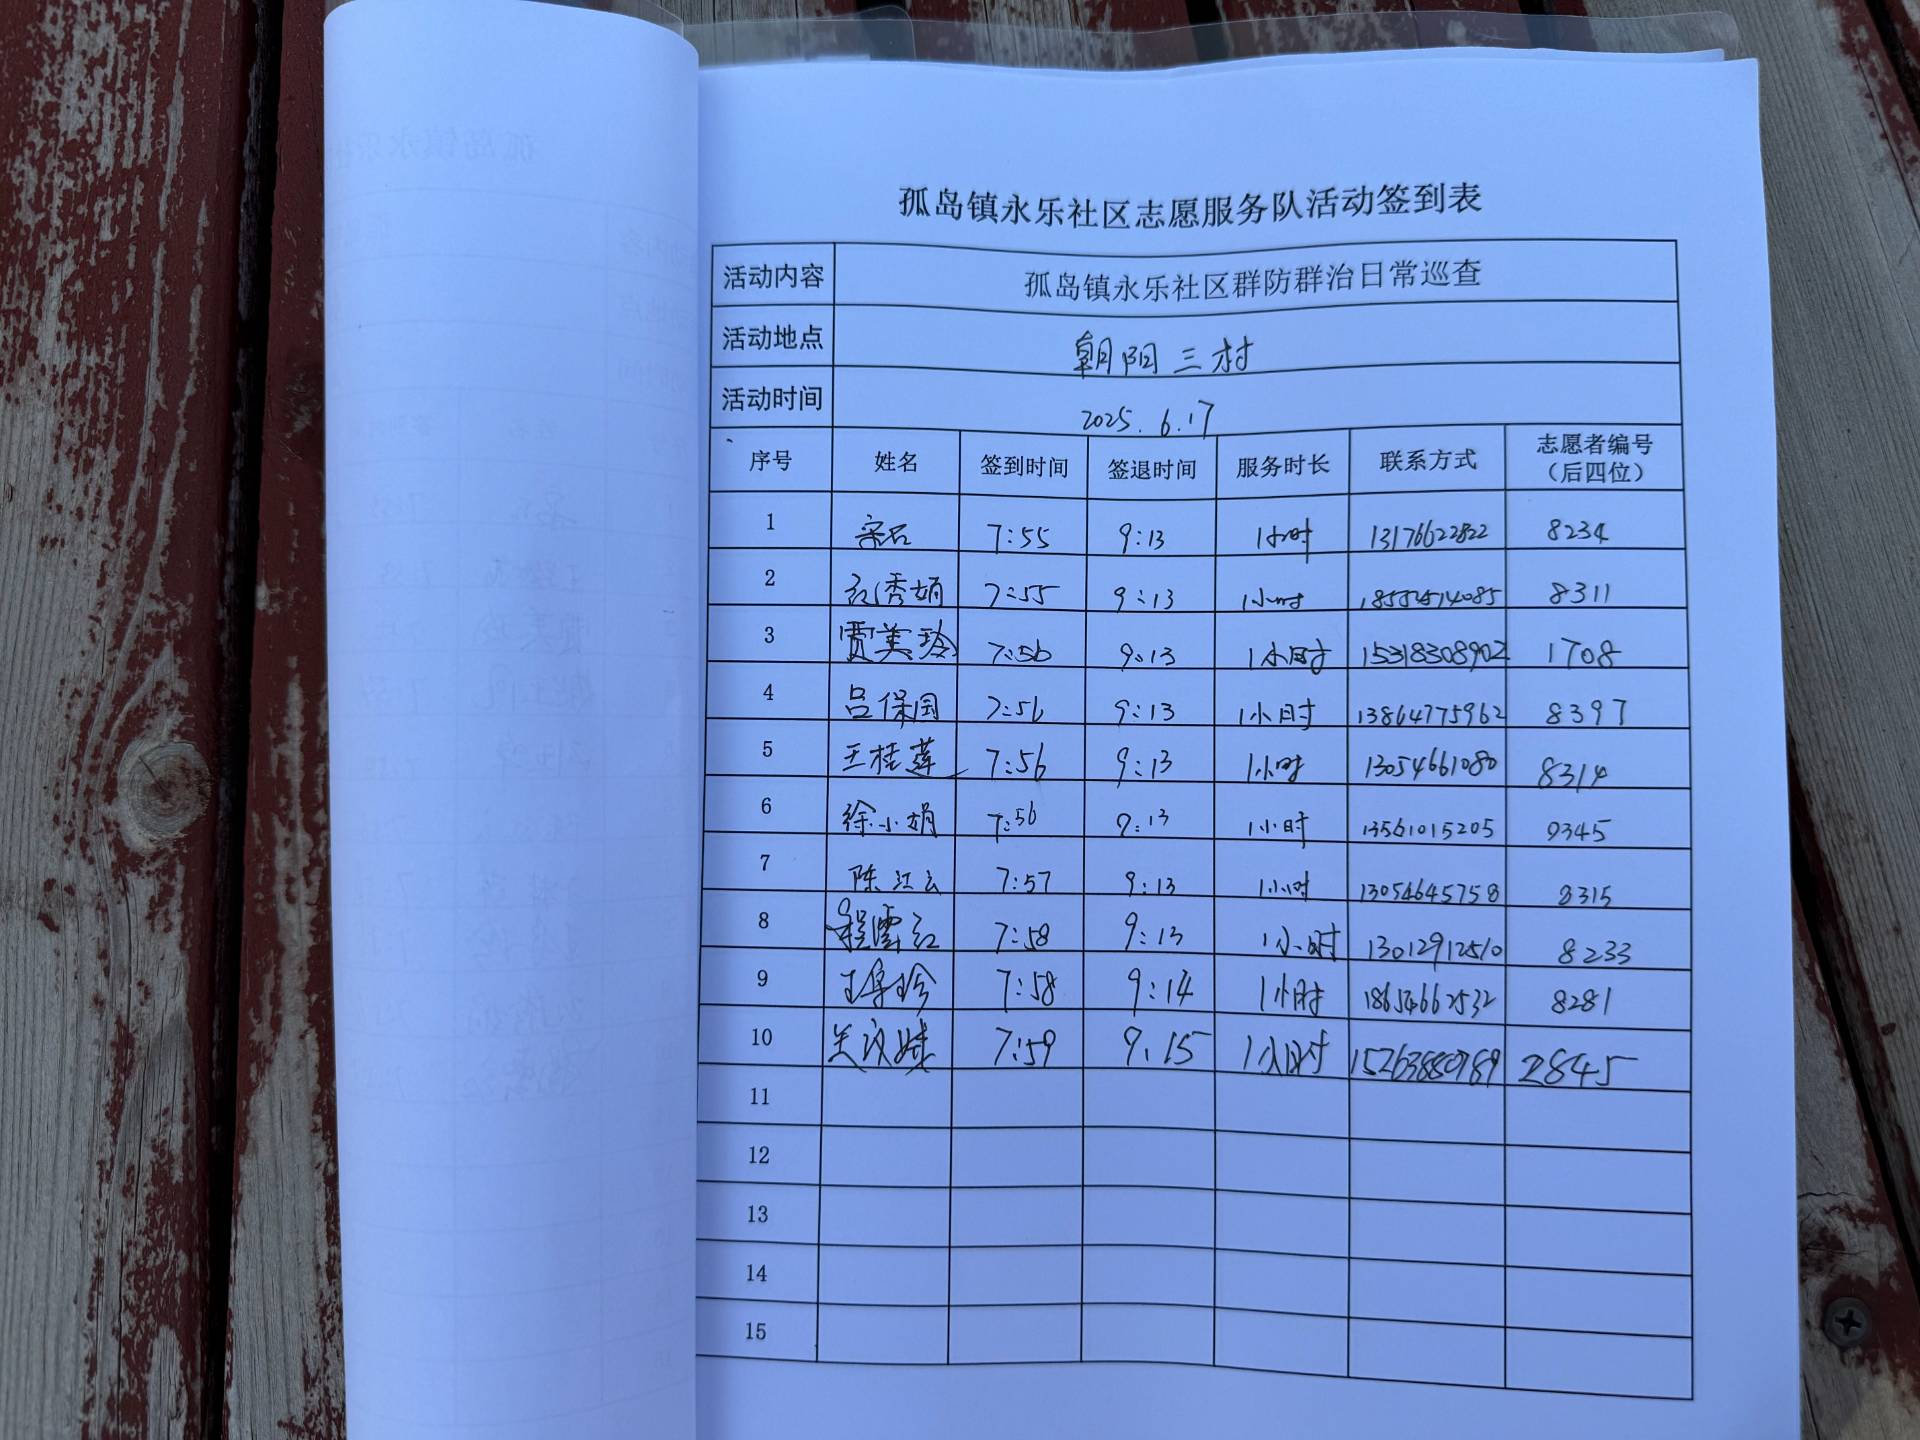 孤岛镇永乐社区志愿服务队活动签到表
活动内容 孤岛镇永乐社区群防群治日常巡查
活动地点 朝阳三村
活动时间 2025.6.17
序号 姓名 签到时间 签退时间 服务时长 联系方式 志愿者编号（后四位）
1 7:55 9:13 1小时 13176622822 8234
2 7:55 9:13 1小时 8311
3 贾美玲 7:56 9:13 1小时 15318308902 1708
4 吕保国 7:56 9:13 1小时 13864775962 8397
5 王桂莲 7:56 9:13 1小时 13054661080 8314
6 徐小娟 7:56 9:13 1小时 13561015205
7 陈江云 7:57 9:13 1小时 13054645758 8315
8 程雪红 7:58 9:13 1小时 13012912510 8233
9 7:58 9:14 1小时 18654662532 8281
10 7:59 9:15 1小时 2845
11
12
13
14
15